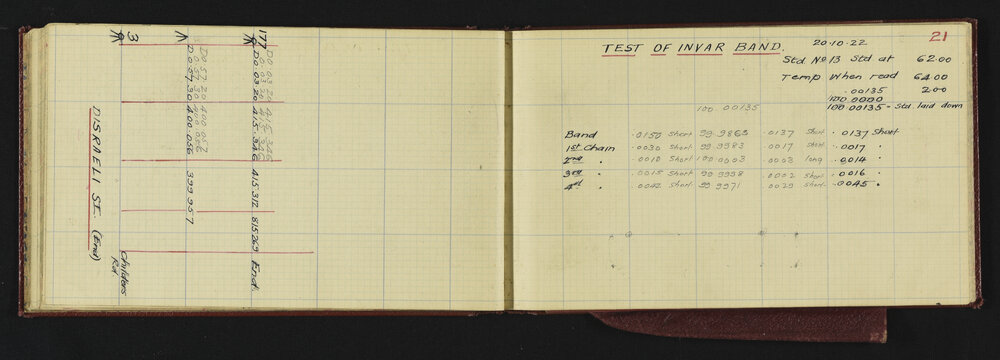 177
D0.03.20 415.346
D0.03.20 415.346
D0.03.20 415.346 415.312 815269 End.
D0.57.20 400.057
D0.57.30 400.056
D0.57.30 400.056 399.957
3
Childers
Rd.
DISRAELI ST. (End)
21
TEST OF INVAR BAND. 20-10-22
Std No 13 Std at 62.00
Temp When read 64.00
.00135 2.00
100.0000
100.00135 100.00135 - Std. laid down
Band .0150 Short 99.9863 .0137 Short .0137 Short
1st Chain .0030 Short 99.9983 .0017 Short .0017 "
2nd " .0010 Short 100.0003 .0003 long .0014 "
3rd " .0015 Short 99.9998 .0002 Short .0016 "
4th " .0042 Short 99.9971 .0029 Short .0045 "